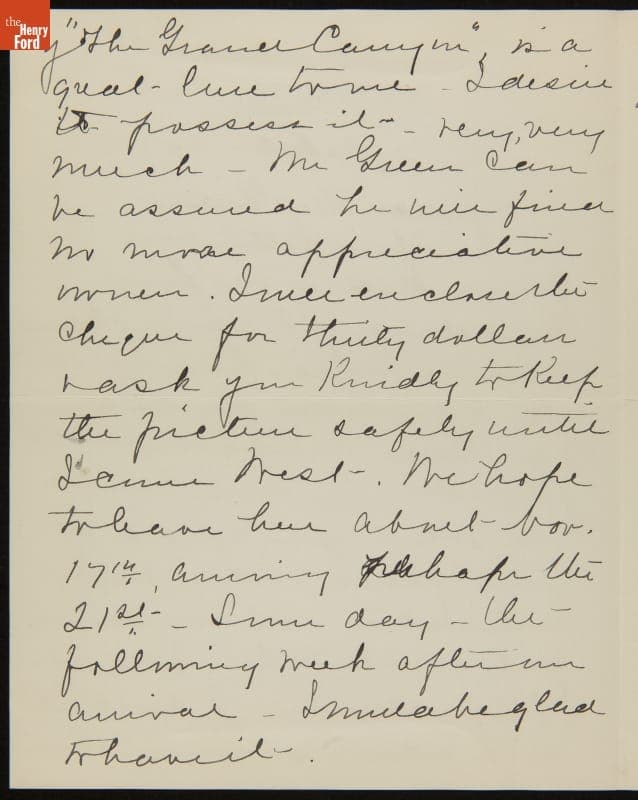 the
Henry
Ford
y "The Grand Canyon", is a
great - lure to me - I desire
to possess it - very, very
much - Mr Green can
be assured he will find
no more appreciative
owner. I will enclose the
cheque for thirty dollars
& ask you Kindly to Keep
the picture safely until
I come West - . We hope
to leave here about - Nov.
17th, arriving perhaps the
21st - Some day - the
following week after our
arrival - I would be glad
to have it - .